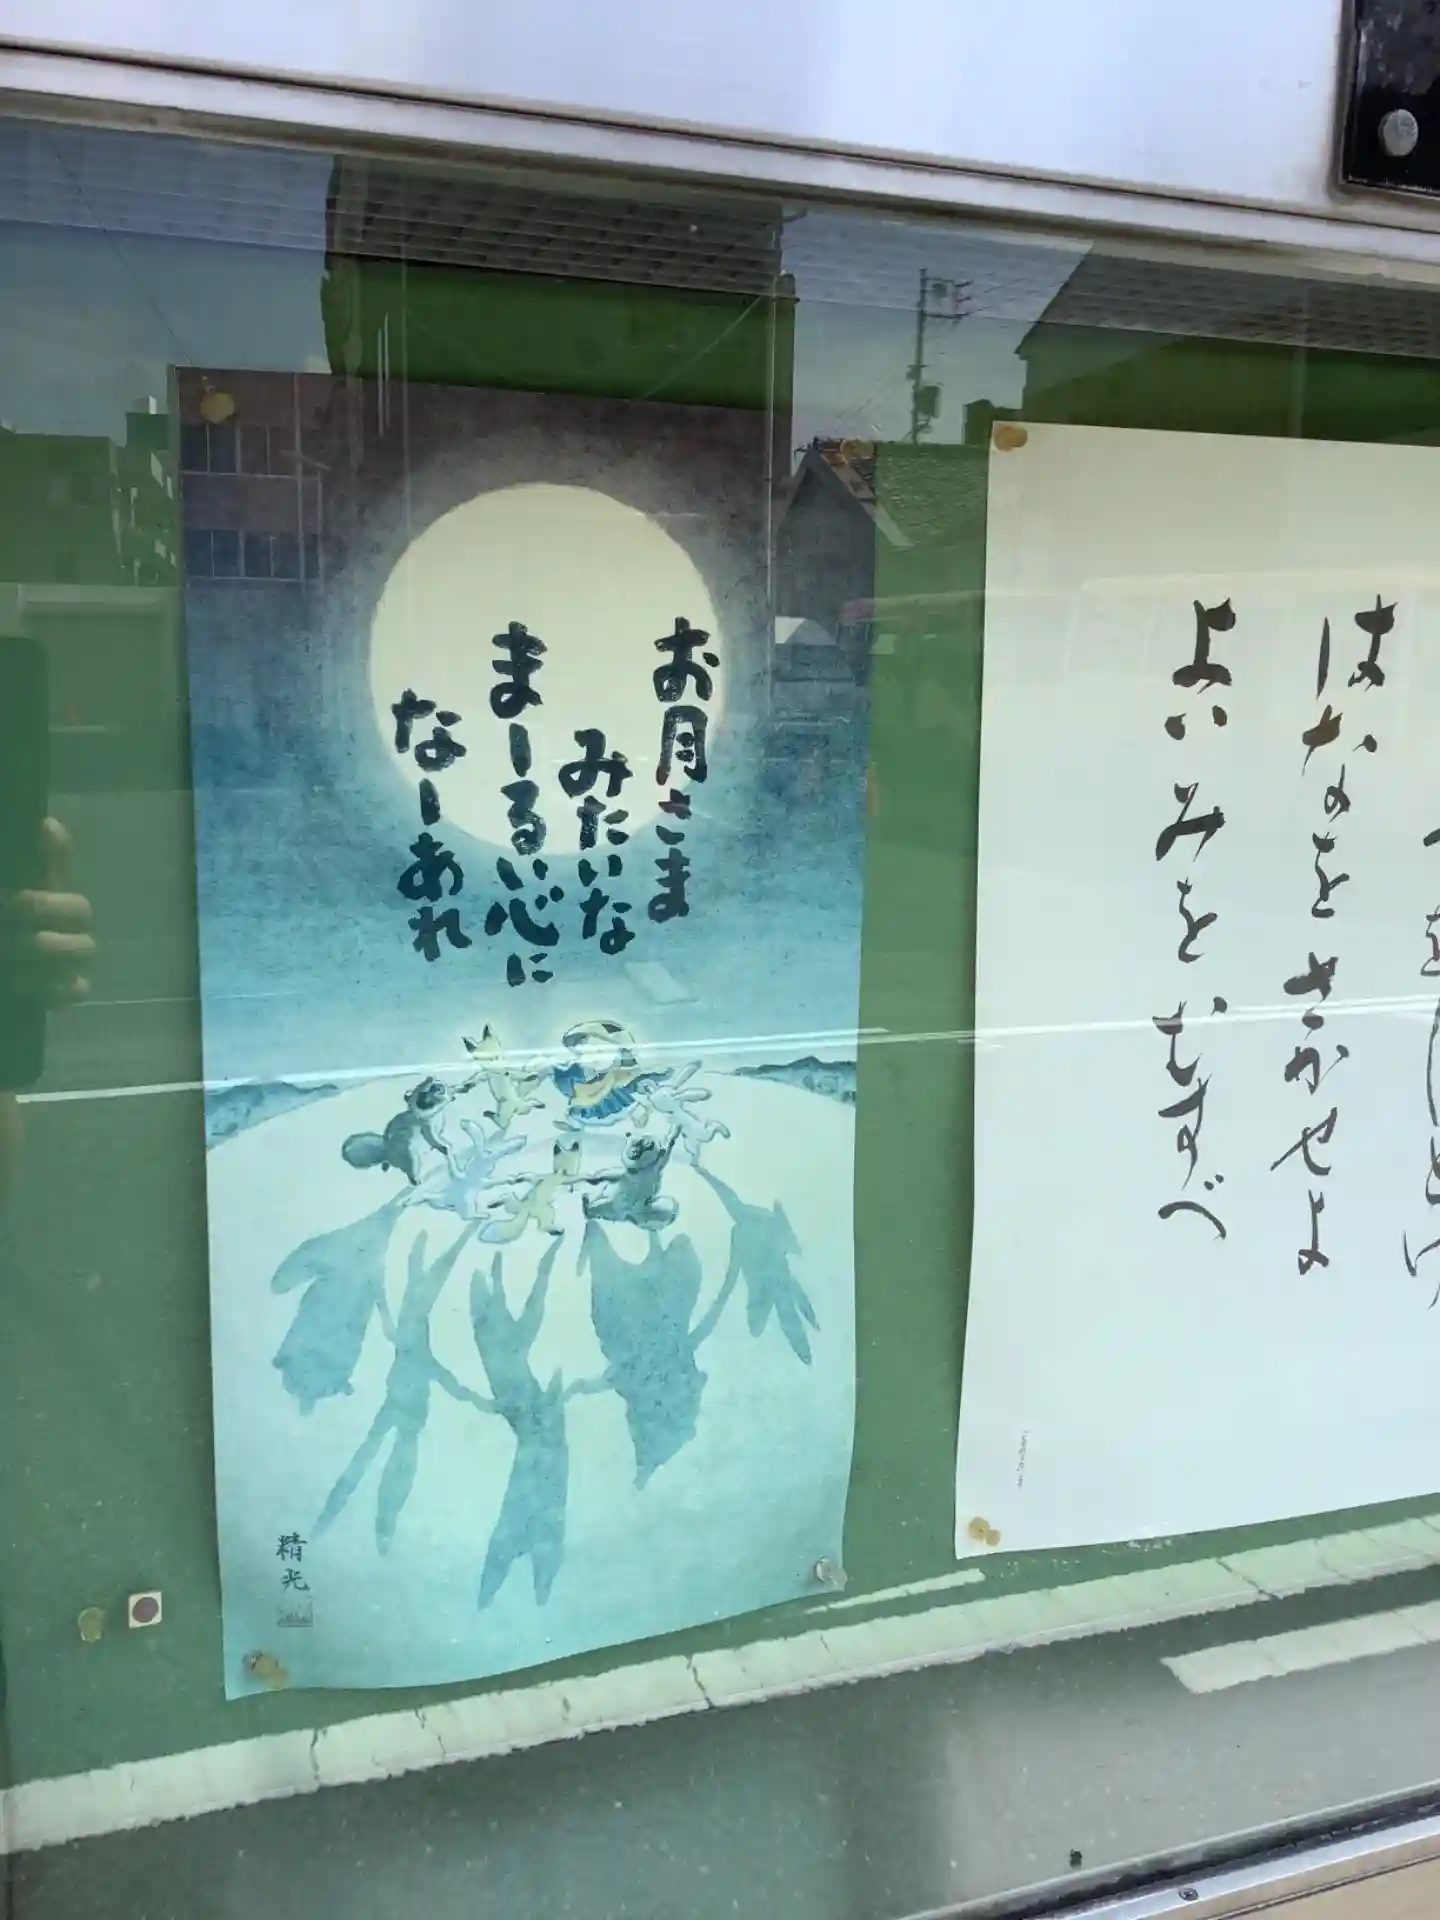 はなをさかせよ
よいみをむすべ
お月さま
みたいな
まーるい心に
なーあれ
精光